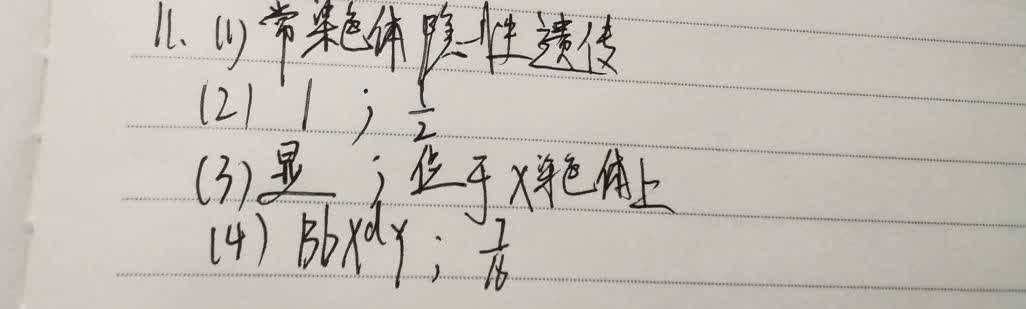 11. (1) 常染色体隐性遗传
(2) 1 ; 1/2
(3) 显 ; 位于X染色体上
(4) BbX^dY ; 7/16